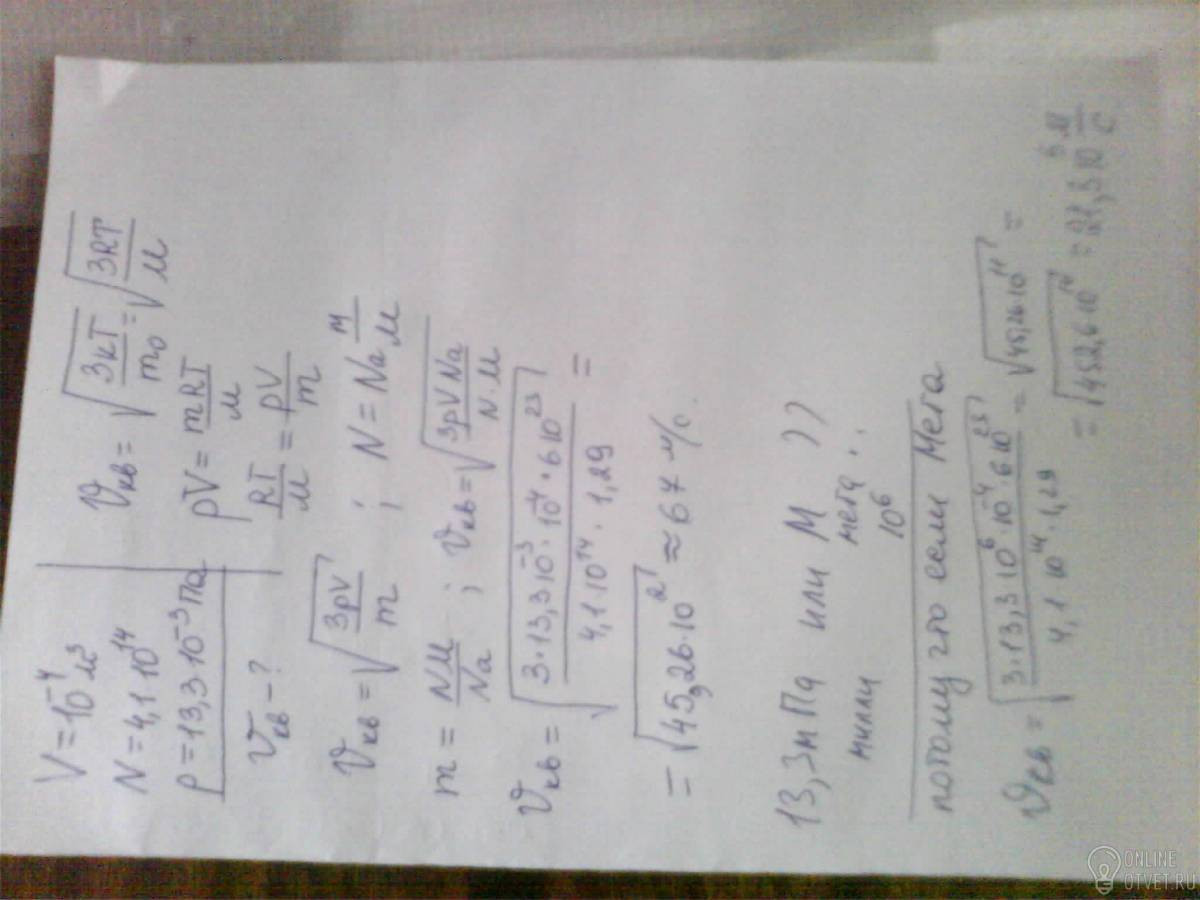 V = 10⁻⁴ м³
N = 4,1·10¹⁴
p = 13,3·10⁻³ Па
υкв - ?
υкв = √(3kT/m₀) = √(3RT/M)
pV = mRT/M
RT/M = pV/m
υкв = √(3pV/m) ; N = Na m/M
m = NM/Na ; υкв = √(3pVNa/N·M)
υкв = √(3·13,3·10⁻³·10⁻⁴·6·10²³/4,1·10¹⁴·1,29) =
= √(45,26·10²) ≈ 67 м/с.
13,3 мПа или М ??
милли мега.
10⁶
потому что если Мега
υкв = √(3·13,3·10⁶·10⁻⁴·6·10²³/4,1·10¹⁴·1,29) = √(45,26·10¹¹) =
= √(452,6·10¹⁰) = 21,3·10⁵ м/с
ONLINE
OTVET.RU